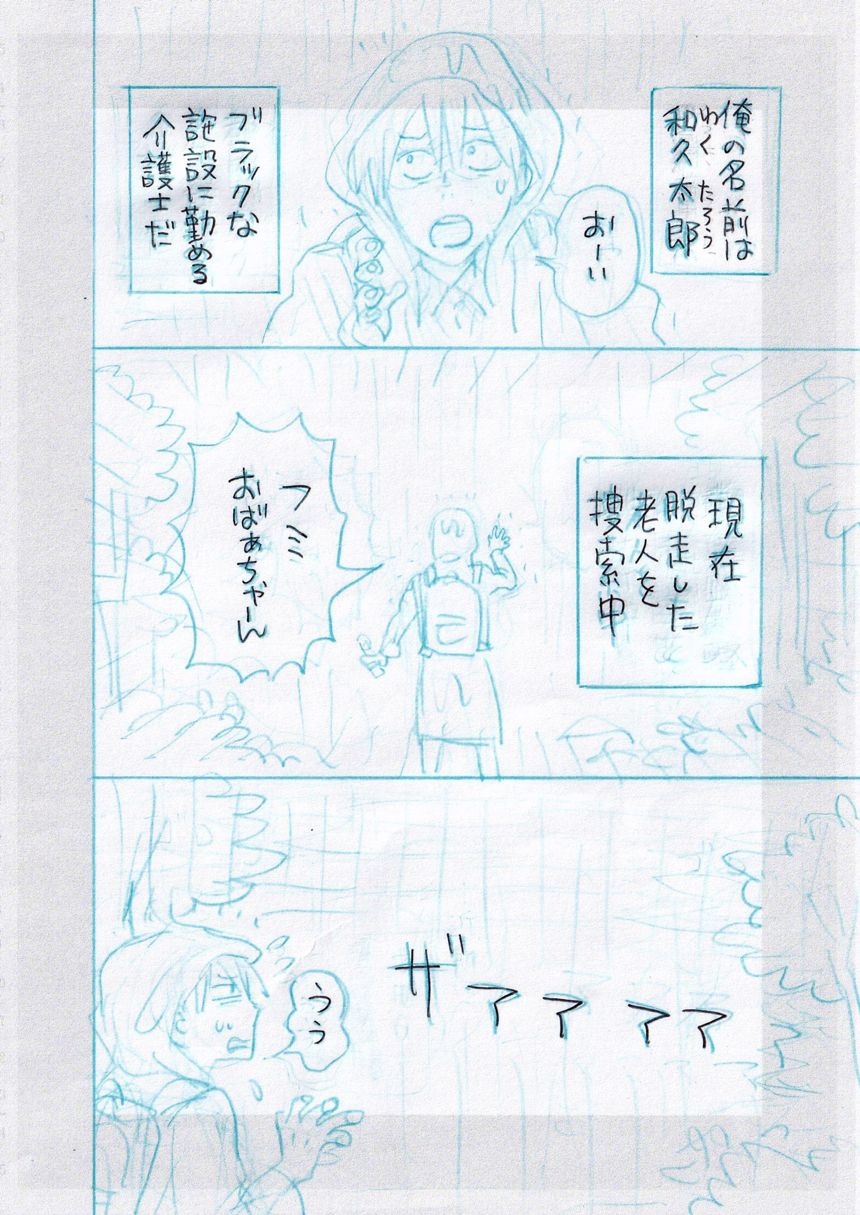 俺の名前は
わく たろう
和久 太郎
おーい
ブラックな
施設に勤める
介護士だ
現在
脱走した
老人を
捜索中
フミ
おばぁちゃーん
ザアアアア
うぅ